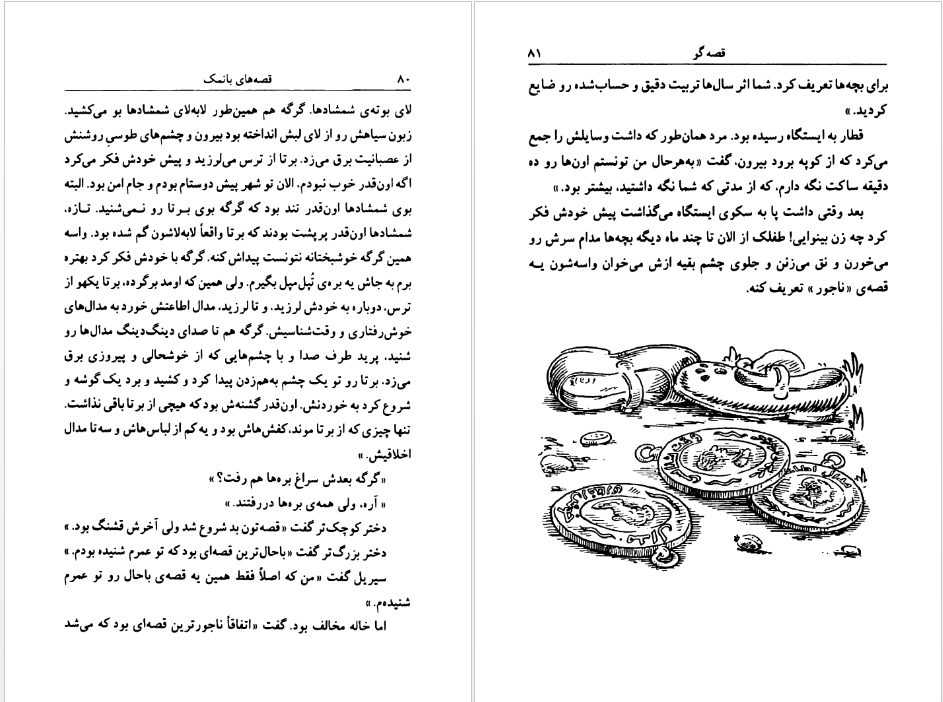 ۸۰ قصه‌های بانمک
لای بوته‌ی شمشادها. گرگه هم همین‌طور لابه‌لای شمشادها بو می‌کشید.
زبون سیاهش رو از لای لبش انداخته بود بیرون و چشم‌های طوسی روشنش
از عصبانیت برق می‌زد. برتا از ترس می‌لرزید و پیش خودش فکر می‌کرد
اگه اون‌قدر خوب نبودم، الان تو شهر پیش دوستام بودم و جام امن بود. البته
بوی شمشادها اون‌قدر تند بود که گرگه بوی برتا رو نمی‌شنید. تازه،
شمشادها اون‌قدر پرپشت بودند که برتا واقعاً لابه‌لاشون گم شده بود. واسه
همین گرگه خوشبختانه نتونست پیداش کنه. گرگه با خودش فکر کرد بهتره
برم به جاش یه بره‌ی تُپل‌مپل بگیرم. ولی همین که اومد برگرده، برتا یکهو از
ترس، دوباره به خودش لرزید، و تا لرزید، مدال اطاعتش خورد به مدال‌های
خوش‌رفتاری و وقت‌شناسیش. گرگه هم تا صدای دینگ‌دینگ مدال‌ها رو
شنید، پرید طرف صدا و با چشم‌هایی که از خوشحالی و پیروزی برق
می‌زد، برتا رو تو یک چشم به‌هم‌زدن پیدا کرد و کشید و برد یک گوشه و
شروع کرد به خوردنش. اون‌قدر گشنه‌ش بود که هیچی از برتا باقی نذاشت.
تنها چیزی که از برتا موند، کفش‌هاش بود و یه کم از لباس‌هاش و سه‌تا مدال
اخلاقیش. »
«گرگه بعدش سراغ بره‌ها هم رفت؟ »
« آره، ولی همه‌ی بره‌ها دررفتند. »
دختر کوچک‌تر گفت «قصه‌تون بد شروع شد ولی آخرش قشنگ بود. »
دختر بزرگ‌تر گفت «باحال‌ترین قصه‌ای بود که تو عمرم شنیده بودم. »
سیریل گفت «من که اصلاً فقط همین یه قصه‌ی باحال رو تو عمرم
شنیده‌م. »
اما خاله مخالف بود. گفت «اتفاقاً ناجورترین قصه‌ای بود که می‌شد
قصه‌گو ۸۱
برای بچه‌ها تعریف کرد. شما اثر سال‌ها تربیت دقیق و حساب‌شده رو ضایع
کردید. »
قطار به ایستگاه رسیده بود. مرد همان‌طور که داشت وسایلش را جمع
می‌کرد که از کوپه برود بیرون، گفت «به‌هرحال من تونستم اون‌ها رو ده
دقیقه ساکت نگه دارم، که از مدتی که شما نگه داشتید، بیشتر بود. »
بعد وقتی داشت پا به سکوی ایستگاه می‌گذاشت پیش خودش فکر
کرد چه زن بینوایی! طفلک از الان تا چند ماه دیگه بچه‌ها مدام سرش رو
می‌خورن و نق می‌زنن و جلوی چشم بقیه ازش می‌خوان واسه‌شون یه
قصه‌ی «ناجور» تعریف کنه.